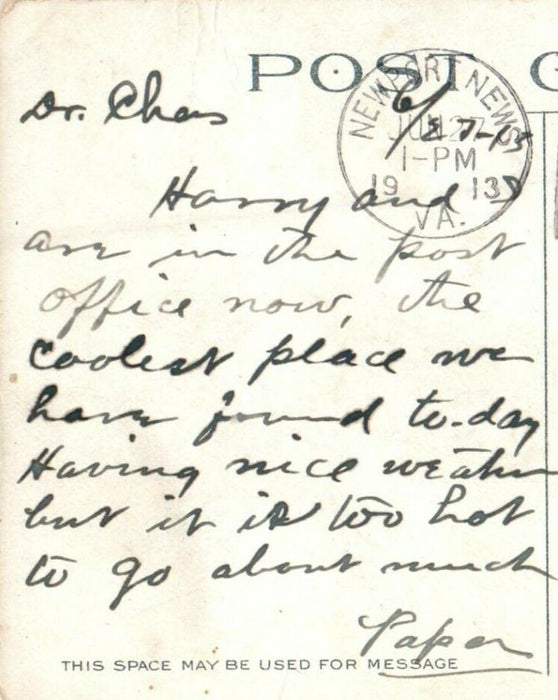 POST C
NEWPORT NEWS
JUN 27
1-PM
1913
VA.
Dr. Chas
6/27-13
Harry and I
are in the post
office now, the
coolest place we
have found to-day
Having nice weather
but it is too hot
to go about much
Papa
THIS SPACE MAY BE USED FOR MESSAGE